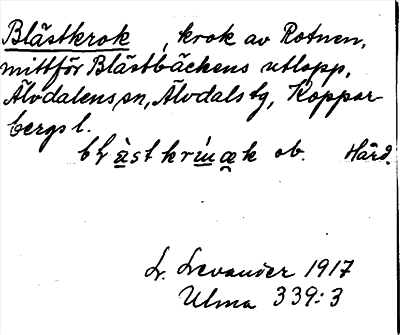 Blästkrok, krok av Rotnen,
mittför Blästbäckens utlopp,
Älvdalens sn, Älvdals tg, Koppar-
bergs l.
ob. Hård.
L. Levander 1917
Ulma 339:3